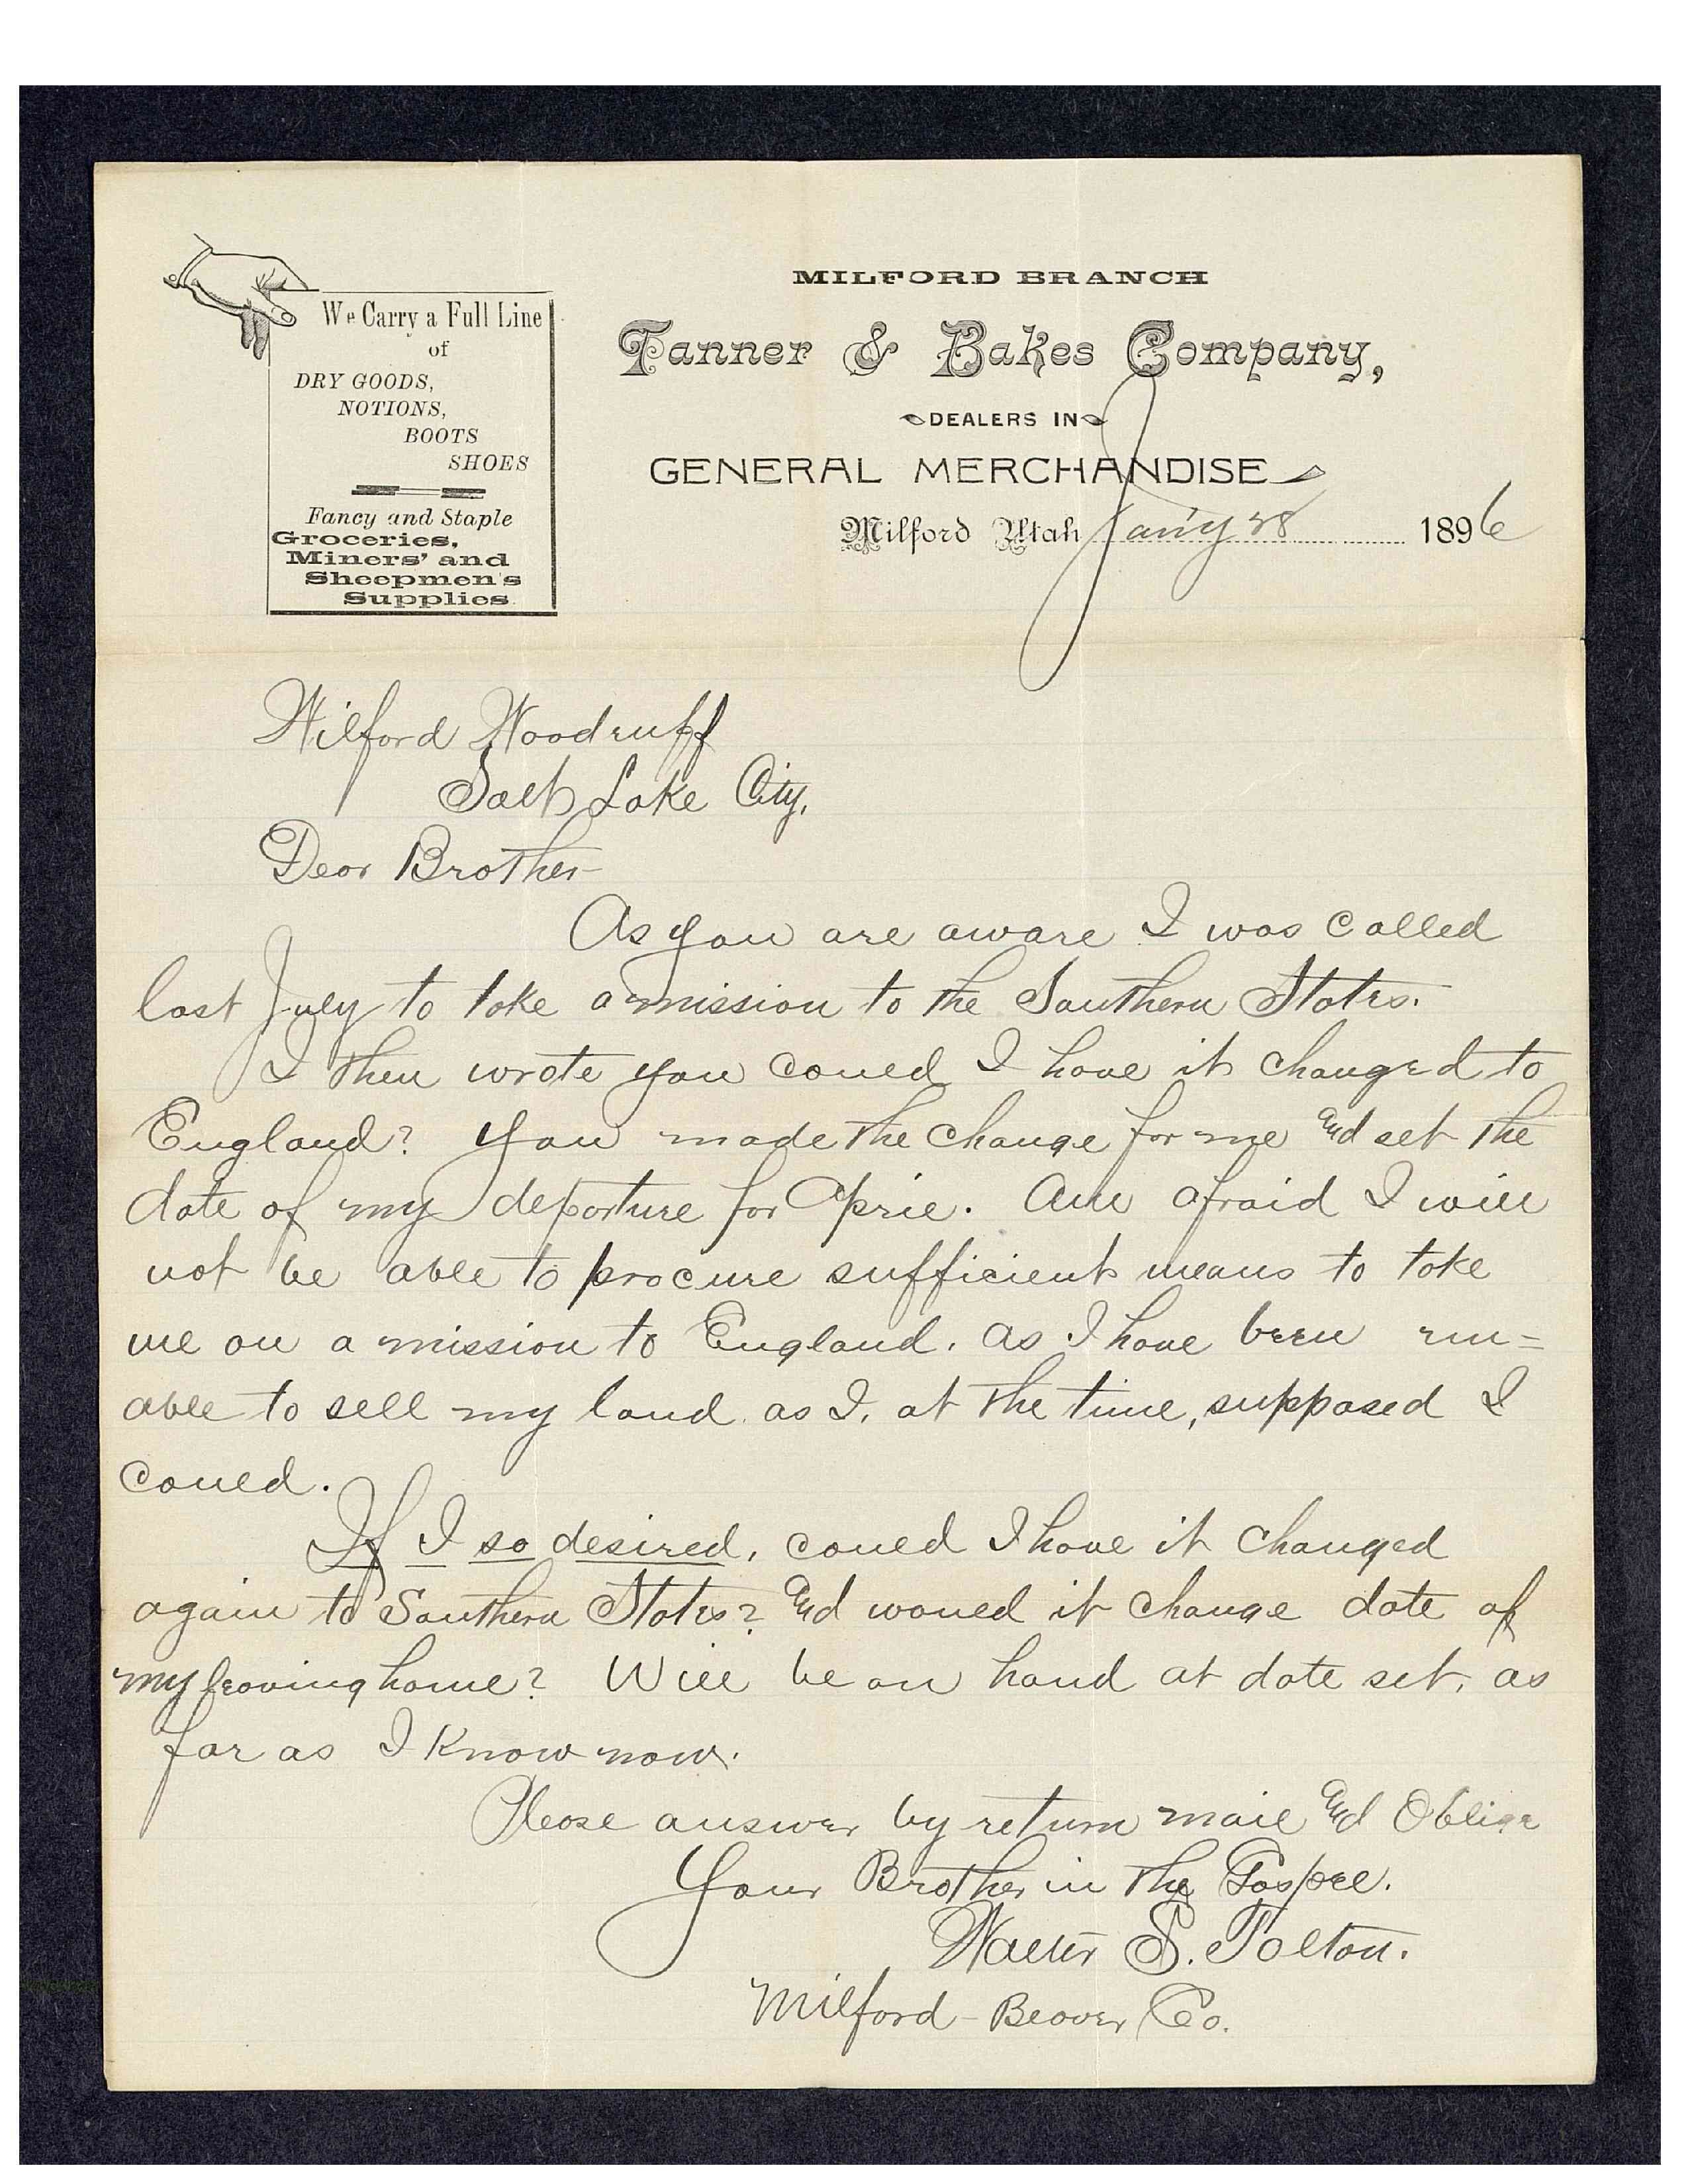 We Carry a Full Line
of
DRY GOODS,
NOTIONS,
BOOTS
SHOES
Fancy and Staple
Groceries,
Miners' and
Sheepmen's
Supplies
MILFORD BRANCH
Tanner & Bakes Company,
DEALERS IN
GENERAL MERCHANDISE
Milford Utah Jan'y 28 1896
Wilford Woodruff
Salt Lake City,
Dear Brother-
As you are aware I was called
last July to take a mission to the Southern States.
I then wrote you could I have it changed to
England? You made the change for me and set the
date of my departure for April. Am afraid I will
not be able to procure sufficient means to take
me on a mission to England, as I have been un=
able to sell my land as I, at the time, supposed I
could.
If I so desired, could I have it changed
again to Southern States? And would it change date of
my leaving home? Will be on hand at date set, as
far as I know now.
Please answer by return mail and Oblige
Your Brother in the Gospel.
Walter S. Tolton.
Milford - Beaver Co.